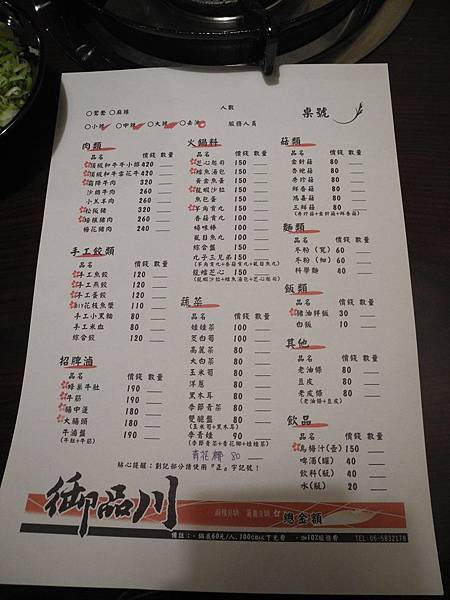 人數
桌號
○鴛鴦 ○麻辣
○小辣 ○中辣 ○大辣
服務人員
肉類
品名 價錢 數量
頂級和牛牛小排420
頂級和牛雪花牛420
霜降牛肉 320
沙朗牛肉 260
小羔羊肉 260
松阪豬 320
極檳豬肉 260
梅花豬肉 240
手工餃類
品名 價錢 數量
手工魚餃 120
手工燕餃 120
手工蛋餃 120
DIY花枝魚漿 110
手工小黑輪 80
手工米血 80
綜合餃 120
招牌滷
品名 價錢 數量
蜂巢牛肚 190
牛筋 190
腸中蓮 180
大腸頭 180
牛滷盤 190
(牛肚+牛筋)
火鍋料
品名 價錢 數量
芝心起司 150
鱈魚湯包 150
黃金魚蛋 150
龍蝦沙拉 150
魚包蛋 100
羊角貢丸 100
香菇貢丸 100
蟳味棒 100
虱目魚丸 100
綜合盤 150
九子三兄弟150
(羊角貢丸+香菇貢丸+虱目魚丸)
龍鱈芝心 150
(龍蝦沙拉+鱈魚湯包+芝心起司)
蔬菜
品名 價錢 數量
娃娃菜 100
茭白筍 100
高麗菜 80
大白菜 80
玉米筍 80
洋蔥 80
黑木耳 80
季節青菜 80
雙脆盤 80
(玉米筍+黑木耳)
季青娃 90
(季節青菜+青花椰+娃娃菜)
青花椰 80
菇類
品名 價錢 數量
金針菇 80
杏鮑菇 80
秀珍菇 80
鮮香菇 80
鴻喜菇 80
三鮮菇 80
(秀珍菇+金針菇+鮮香菇)
麵類
品名 價錢 數量
冬粉(寬) 60
冬粉(細) 60
科學麵 40
飯類
品名 價錢 數量
豬油拌飯 30
白飯 10
其他
品名 價錢 數量
老油條 80
豆皮 80
老皮條 80
(老油條+豆皮)
飲品
品名 價錢 數量
烏梅汁(壺) 150
啤酒(罐) 40
飲料(瓶) 40
水(瓶) 20
貼心提醒:劃記部分請使用『正』字記號!
御品川
總金額
備註:‧鍋底60元/人,100CM以下免費 ‧加10%服務費
TEL:06-5832178